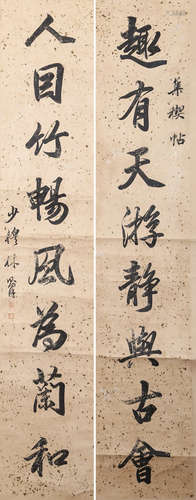 趣有天游靜與古會
集禊帖
人因竹暢風為蘭和
少穆林